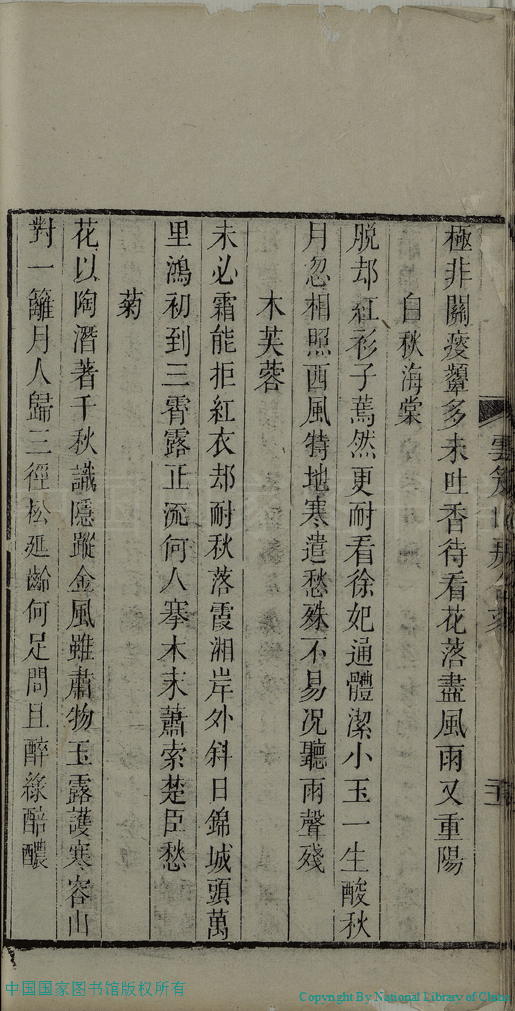 極非關瘦顰多未吐香待看花落盡風雨又重陽
白秋海棠
脫却紅衫子蔫然更耐看徐妃通體潔小玉一生酸秋
月忽相照西風特地寒遣愁殊不易况聽雨聲殘
木芙蓉
未必霜能拒紅衣却耐秋落霞湘岸外斜日錦城頭萬
里鴻初到三霄露正流何人搴木末蕭索楚臣愁
菊
花以陶潛著千秋識隱蹤金風雖肅物玉露護寒容山
對一籬月人歸三徑松延齡何足問且醉綠醅醲
中国国家图书馆版权所有
Copyright By National Library of China